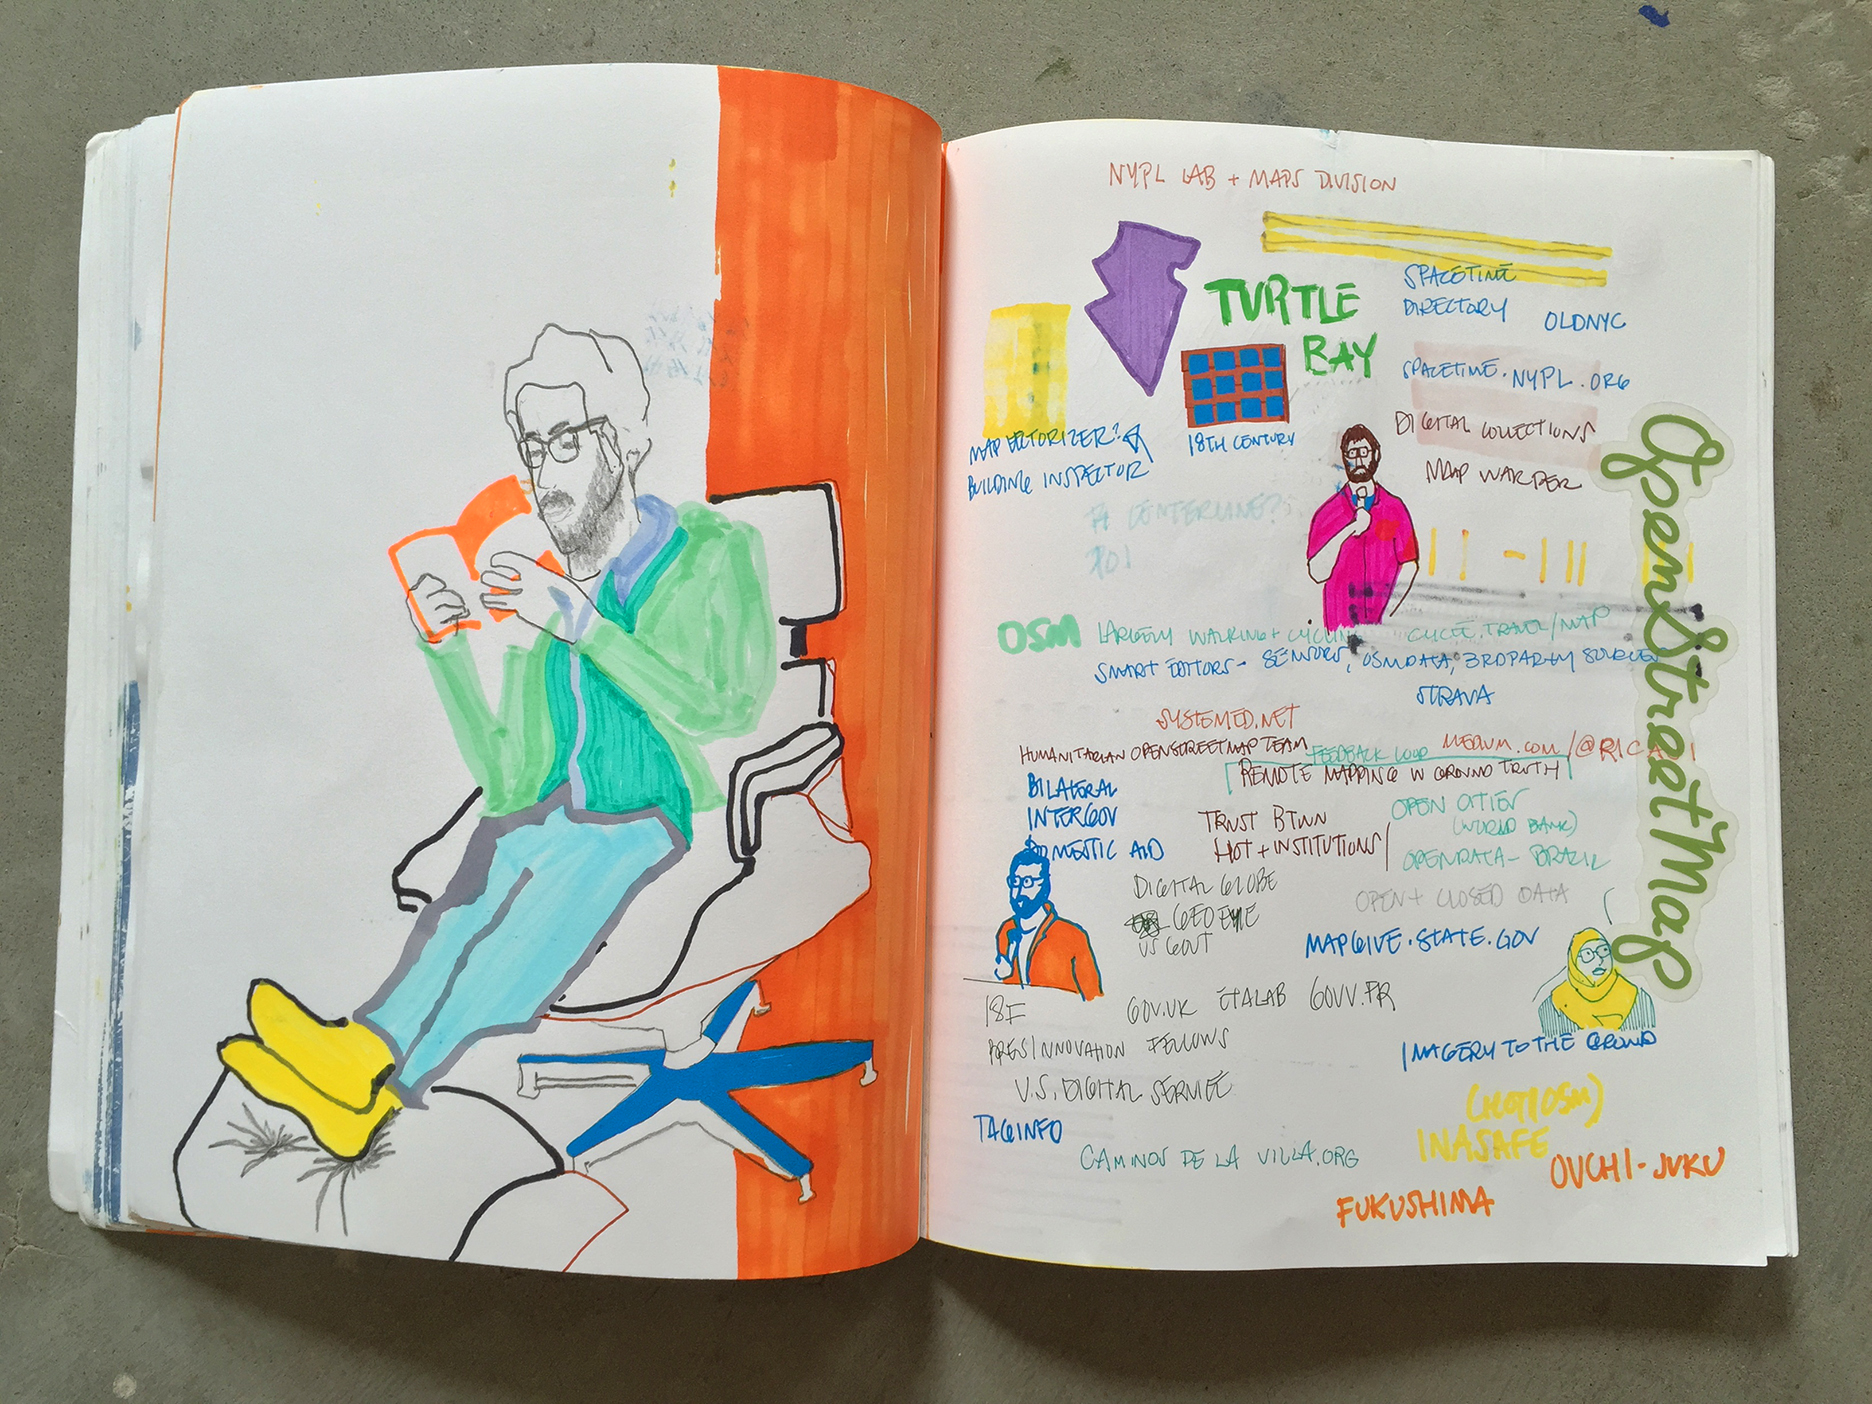 NYPL LAB + MAPS DIVISION
TURTLE
BAY
SPACETIME
DIRECTORY
OLDNYC
SPACETIME.NYPL.ORG
MAP VECTORIZER?
BUILDING INSPECTOR
18TH CENTURY
DIGITAL COLLECTIONS
MAP WARPER
OpenStreetMap
CENTERLINE?
POI
OSM
LARGELY WALKING + CYCLING
CYCLE.TRAVEL/MAP
SMART EDITORS - SENSORS, OSMDATA, 3RDPARTY SOURCES
STRAVA
SYSTEMED.NET
HUMANITARIAN OPENSTREETMAP TEAM
FEEDBACK LOOP
MEDIUM.COM/@RICA
REMOTE MAPPING W GROUND TRUTH
BILATERAL
INTERGOV
DOMESTIC AID
TRUST BTWN
HOT + INSTITUTIONS
OPEN CITIES
(WORLD BANK)
OPENDATA - BRAZIL
OPEN + CLOSED DATA
DIGITAL GLOBE
GEO EYE
US GOVT
MAPGIVE.STATE.GOV
18F
GOV.UK ETALAB GOUV.FR
PRES INNOVATION FELLOWS
U.S. DIGITAL SERVICE
IMAGERY TO THE GROUND
TAGINFO
CAMINOS DE LA VILLA.ORG
(HOT/OSM)
INASAFE
OUCHI-JUKU
FUKUSHIMA